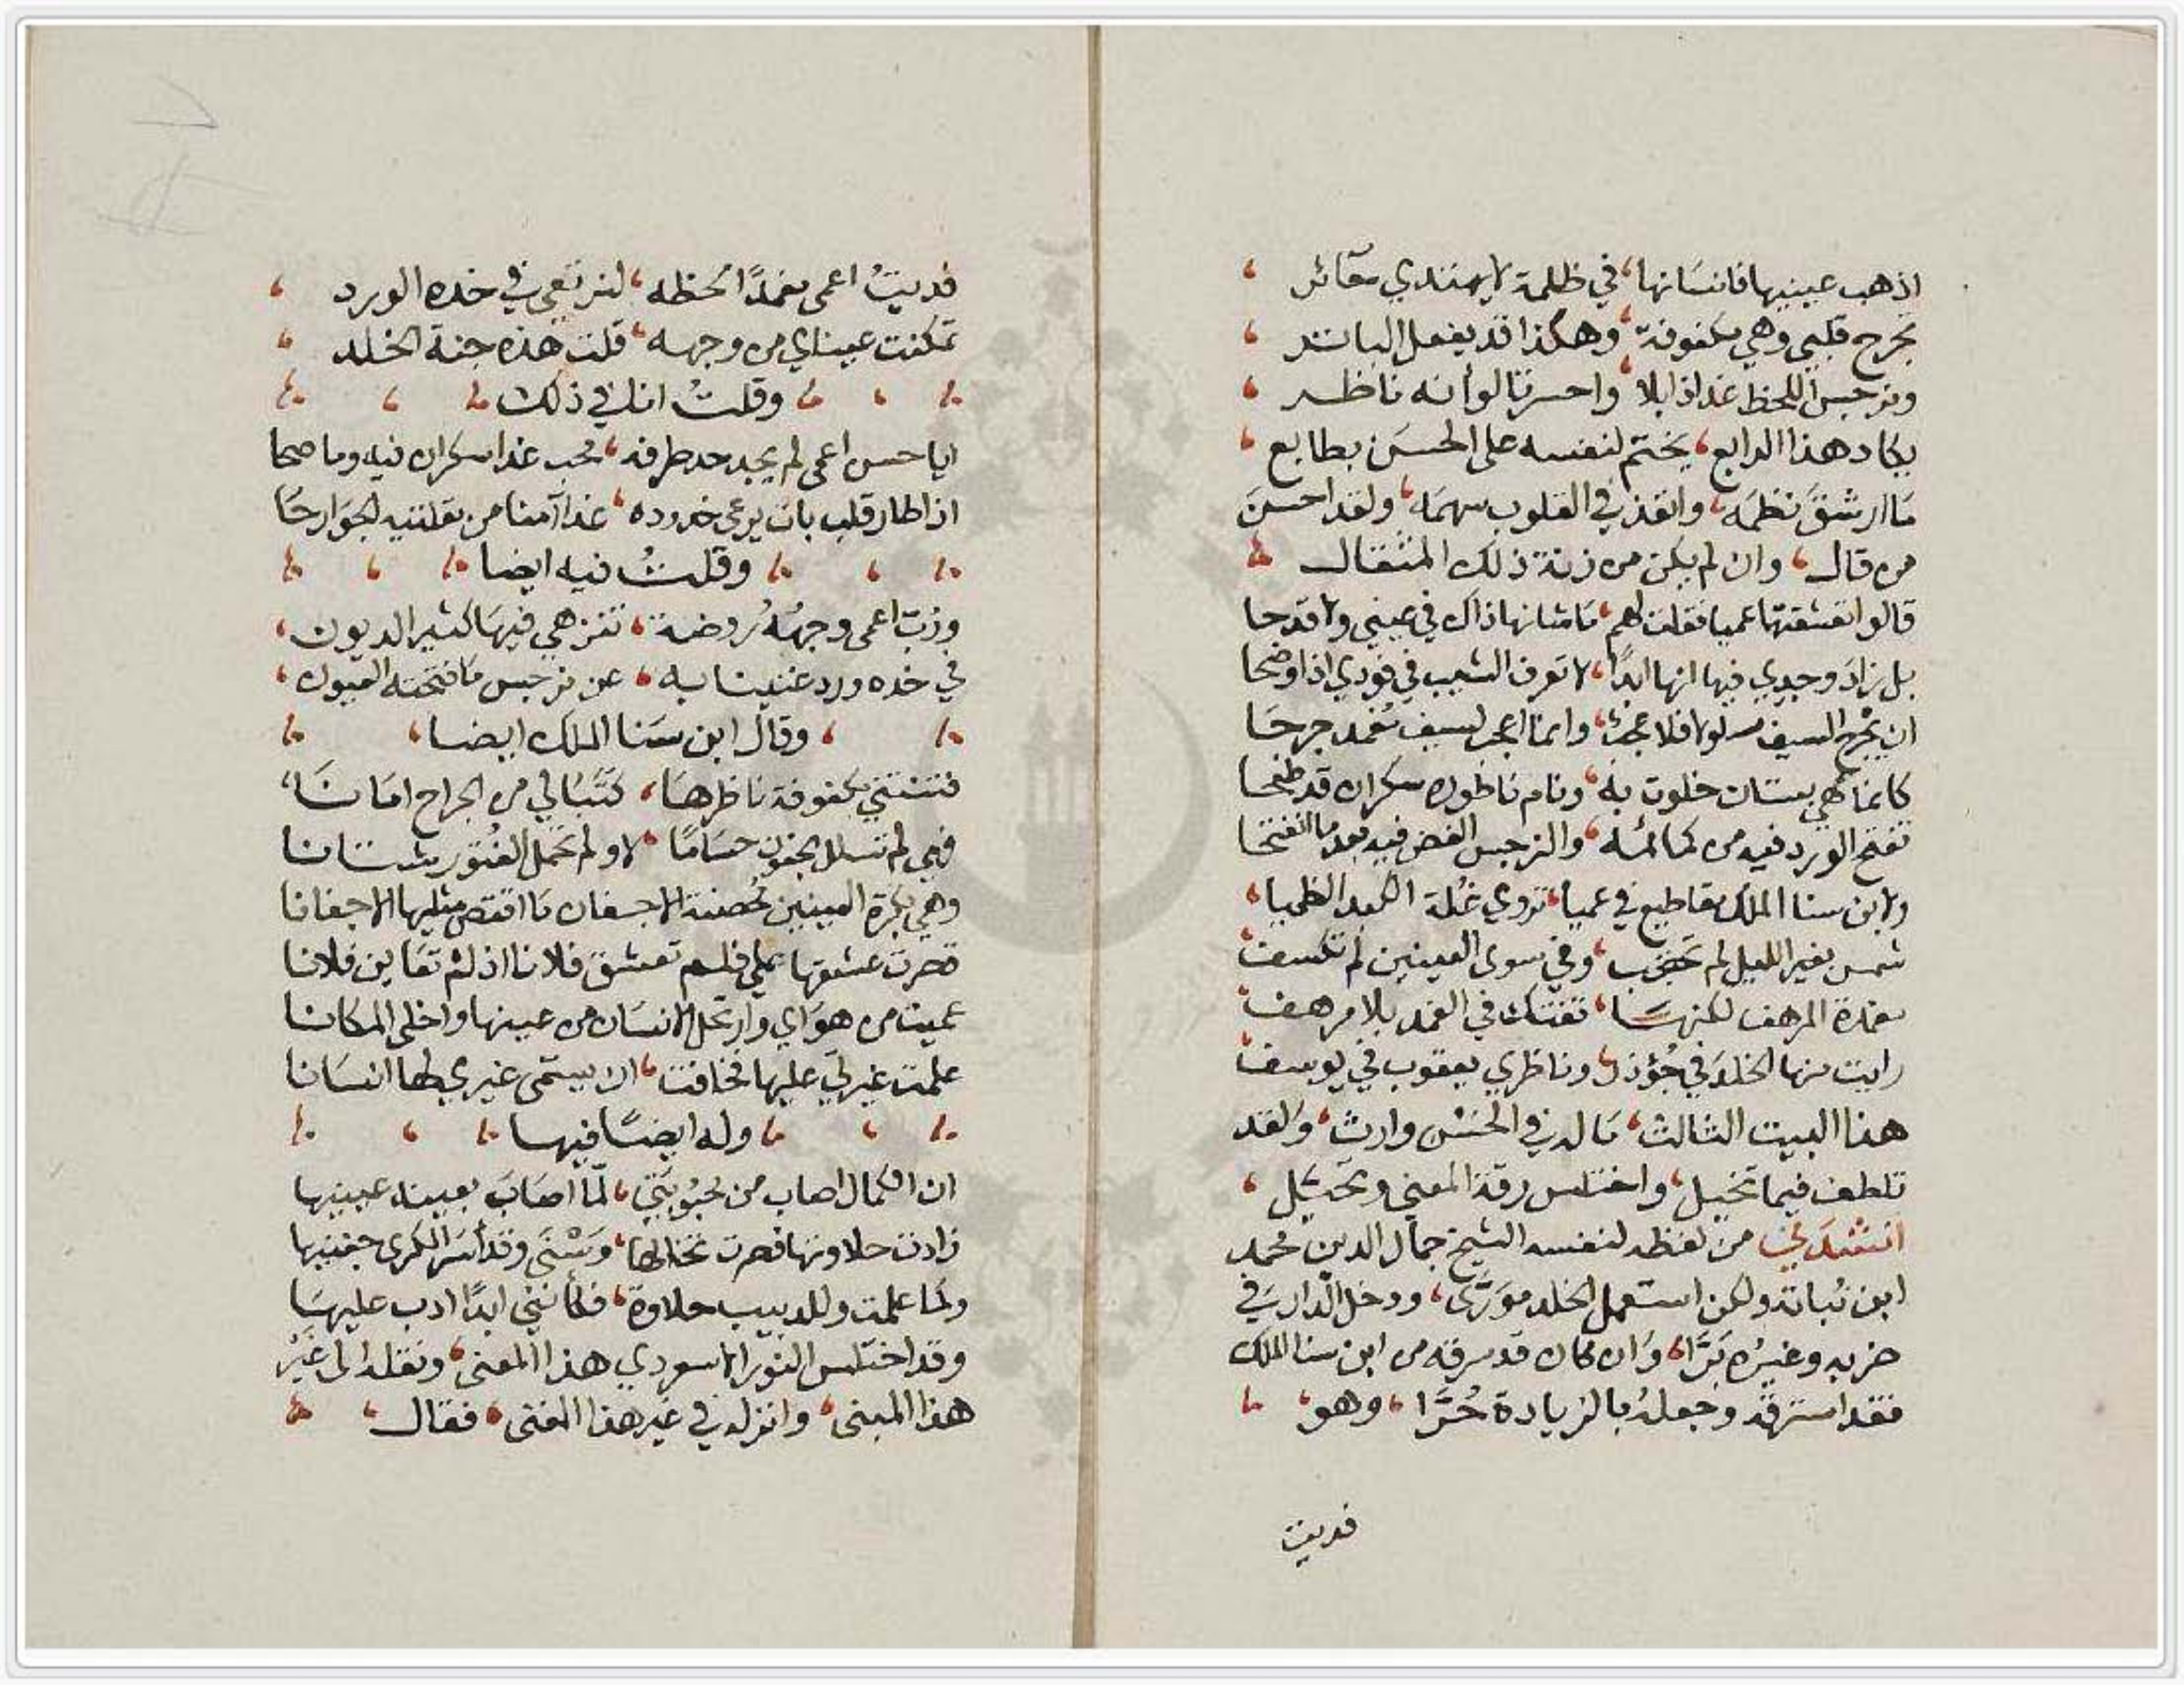 اذهب عينيها فانسانها، في ظلمة لا يهتدي حائر،
تجرح قلبي وهي مكفوفة، وهكذا قد يفعل الباتر،
ونرجس اللحظ غدا ذابلا، واحسرتا لو أنه ناظر،
يكاد هذا الرابع، يختم لنفسه على الحسن بطابع،
ما ارشق نظمه، وانفذ في القلوب سهمه، ولقد احسن
من قال، وان لم يكن من زنة ذلك المثقال
قالوا تعشقتها عميا فقلت لهم، ما شانها ذاك في عيني ولا قدحا
بل زاد وجدي فيها انها ابدًا، لا تعرف الشيب في فودي اذا وضحا
ان يجرح السيف مسلولا فلا عجب، وانما اعجب لسيف مغمد جرحا
كانما هي بستان خلوت به، ونام ناطوره سكران قد طفحا
تفتح الورد فيه من كمائمه، والنرجس الغض فيه بعد ما انفتحا
ولابن سنا الملك مقاطيع في عميا، تروي غلة الكبد الظميا،
شمس بغير الليل لم تحجب، وفي سوى العينين لم تكسف
مغمدة المرهف لكنها، تفتك في الغمد بلا مرهف
رايت منها الخلد في جؤذر، وناظري يعقوب في يوسف
هذا البيت الثالث، ما له في الحسن وارث، ولقد
تلطف فيما تخيل، واختلس رقة المعنى وتحيل،
انشدني من لفظه لنفسه الشيخ جمال الدين محمد
ابن نباته ولكن استعمل الخلد مورّى، ودخل الدار في
حزبه وغيره بَرَّا، وان كان قد سرقه من ابن سنا الملك
فقد استرقه وجعله بالزيادة حُرَّا، وهو،
فديت
فديتُ اعمى مغمدًا لحظه، لنرتعي في خده الورد،
تمكنت عيناي من وجهه، قلت هذه جنة الخلد،
وقلتُ انا في ذلك
ايا حسن اعمى لم يجد حد طرفه، محب غدا سكران فيه وما صحا
اذا طار قلب بات يرعى خدوده، غدا آمنا من مقلتيه الجوارحا
وقلتُ فيه ايضا
ورب اعمى وجهه روضة، تنزهي فيها كثير الديون،
في خده ورد غنينا به، عن نرجس ما فتحته العيون،
وقال ابن سنا الملك ايضا،
فتنتني مكفوفة ناظرها، كتبا لي من الجراح امانا،
فهي لم تسلل الجفون حسامًا، لا ولم تحمل الفتور سنانا
وهي بكر العينين محصنة الاجفان ما افتض مثلها الاجفانا
قصرت عشقها علي فلم تعشق فلانا اذ لم تعاين فلانا
عميت من هواي وارتحل الانسان من عينها واخلى المكانا
علمت غيرتي عليها فخافت، ان يسمى غيري لها انسانا
وله ايضًا فيها
ان الكمال اصاب من محبوبتي، لمّا اصاب بعينه عينيها
زادت حلاوتها فصرت تخالها، وسنى وقد أسر الكرى جفنيها
ولما علمت وللدبيب حلاوة، فكأنني ابدًا ادب عليها
وقد اختلس النور الاسعردي هذا المعنى، ونقله الى غير
هذا المبنى، وانزله في غير هذا المغنى، فقال،